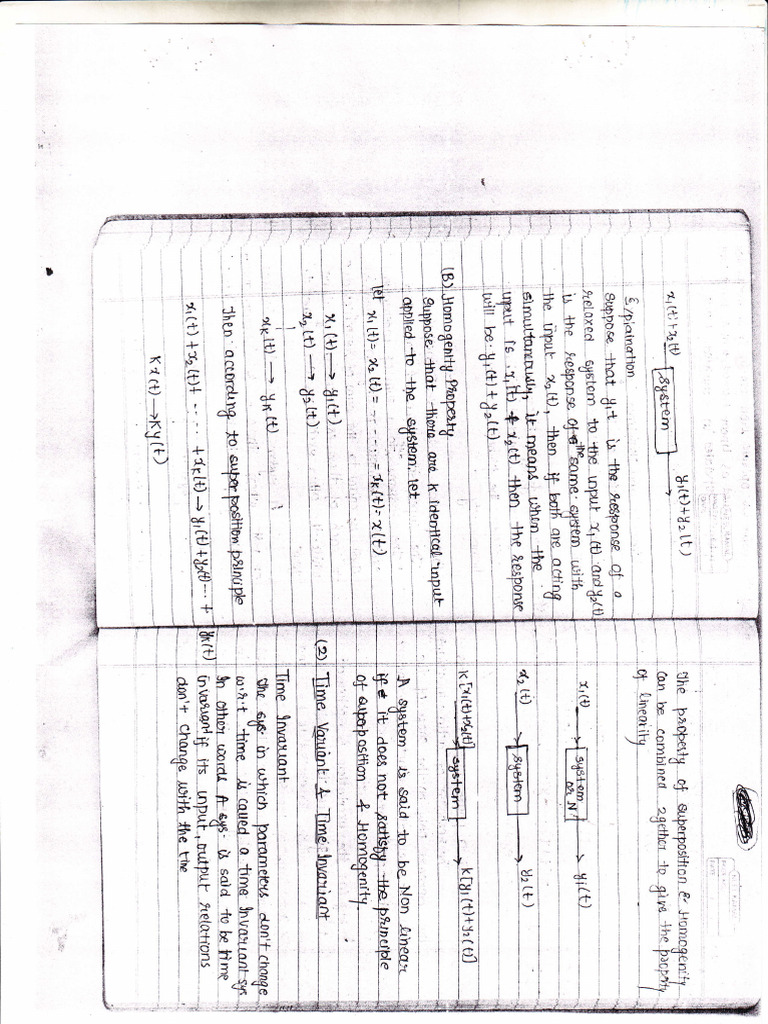 x1(t)+x2(t) system y1(t)+y2(t)
Explaination
suppose that y1t is the response of a
relaxed system to the input x1(t) and y2(t)
is the response of the same system with
the input x2(t), then if both are acting
simultaneously, it means when the
input is x1(t) + x2(t) then the response
will be y1(t) + y2(t)
(B) Homogenity Property
suppose that there are K identical input
applied to the system. let
let x1(t) = x2(t) = ...... = xk(t) = x(t)
x1(t) → y1(t)
x2(t) → y2(t)
xk(t) → yk(t)
Then according to superposition principle
x1(t) + x2(t) + ..... + xk(t) → y1(t) + y2(t) ... + yk(t)
Kx(t) → Ky(t)
The property of superposition & Homogenity
can be combined 2gether to give the property
of linearity
x1(t) → system or N → y1(t)
x2(t) → system → y2(t)
K[x1(t)+x2(t)] → system → K[y1(t)+y2(t)]
A system is said to be Non linear
if it does not satisfy the principle
of superposition & Homogenity.
(2) Time Variant & Time Invariant
Time Invariant
The sys. in which parameters don't change
w.r.t time is called a time Invariant sys
In other words A sys. is said to be time
invariant if its input, output relations
don't change with the time